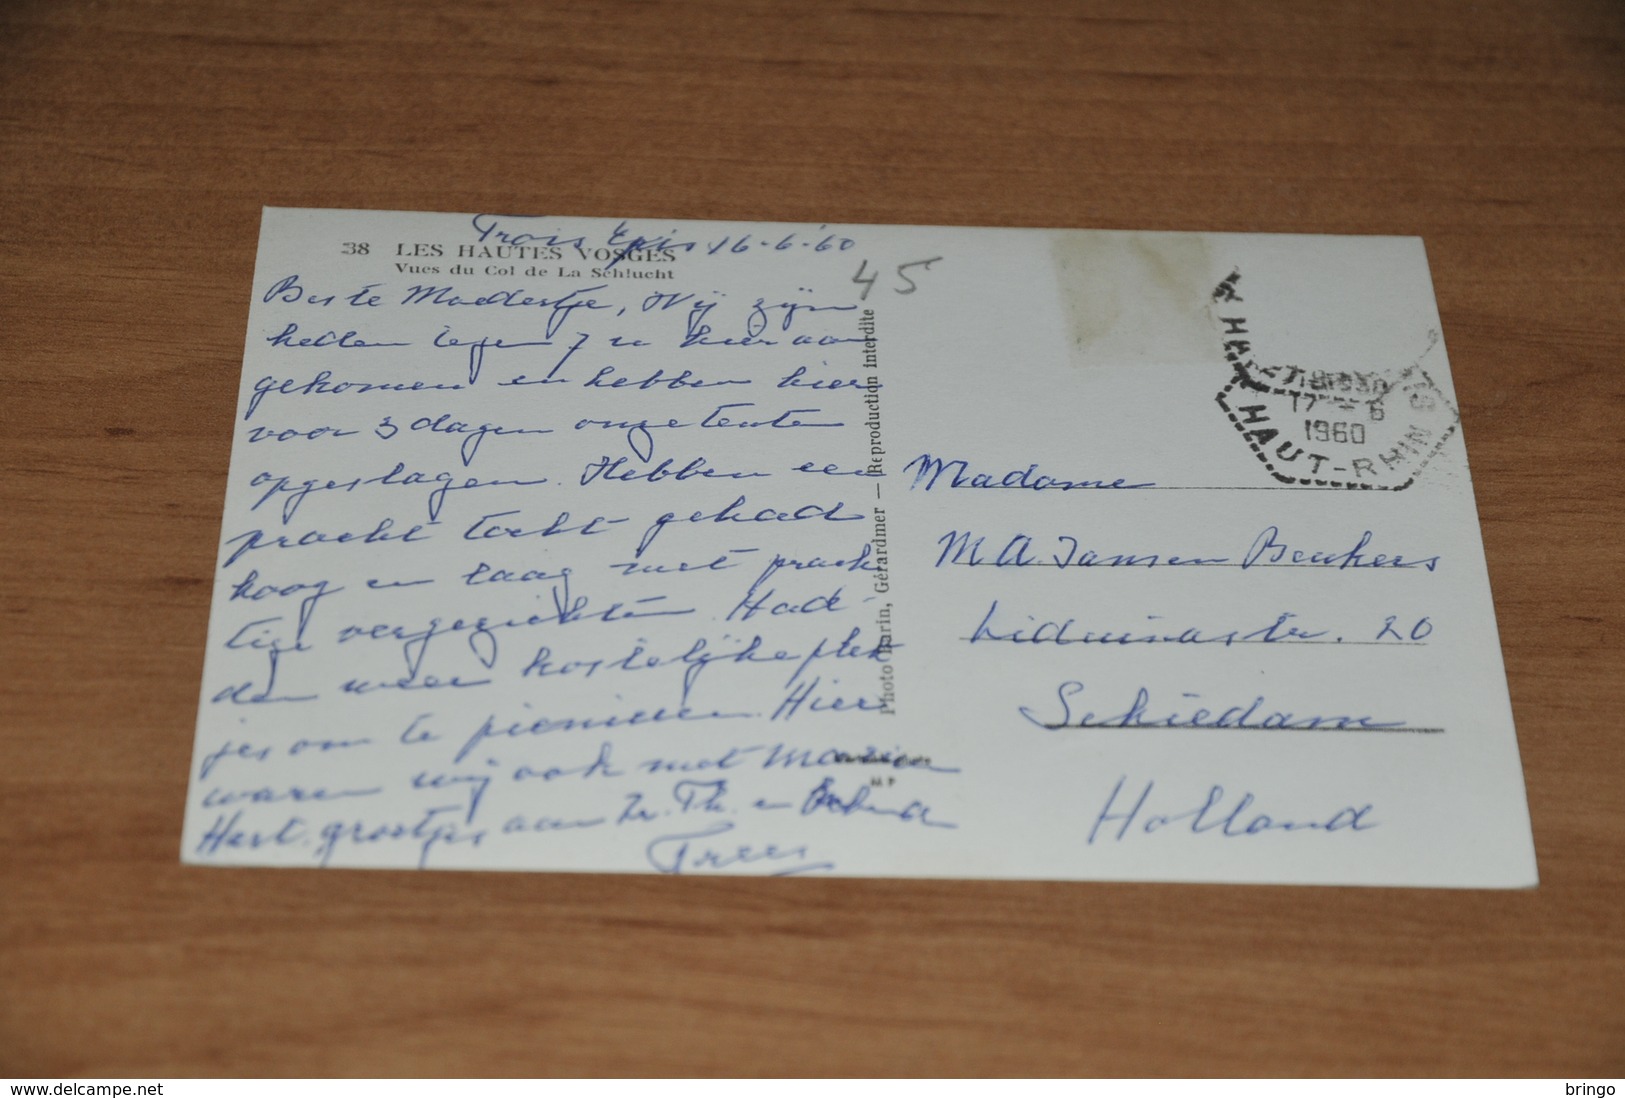 Trois Epis 16-6-'60
38 LES HAUTES VOSGES
Vues du Col de La Schlucht
Beste Moedertje, Wij zijn
heden tegen 7 u hier aan
gekomen en hebben hier
voor 3 dagen onze tenten
opgeslagen. Hebben een
pracht tocht gehad
hoog en laag met prach
tige vergezichten. Had-
den weer kostelijke plek
jes om te picnicken. Hier
waren wij ook met Marian
Hart. groetjes aan Zr. Th. en
Trees
45
Photo Karin, Gérardmer — Reproduction interdite
HAUT-RHIN
17 - 6
1960
Madame
M A. Jansen Beukers
Liduinastr. 20
Schiedam
Holland
www.delcampe.net
bringo